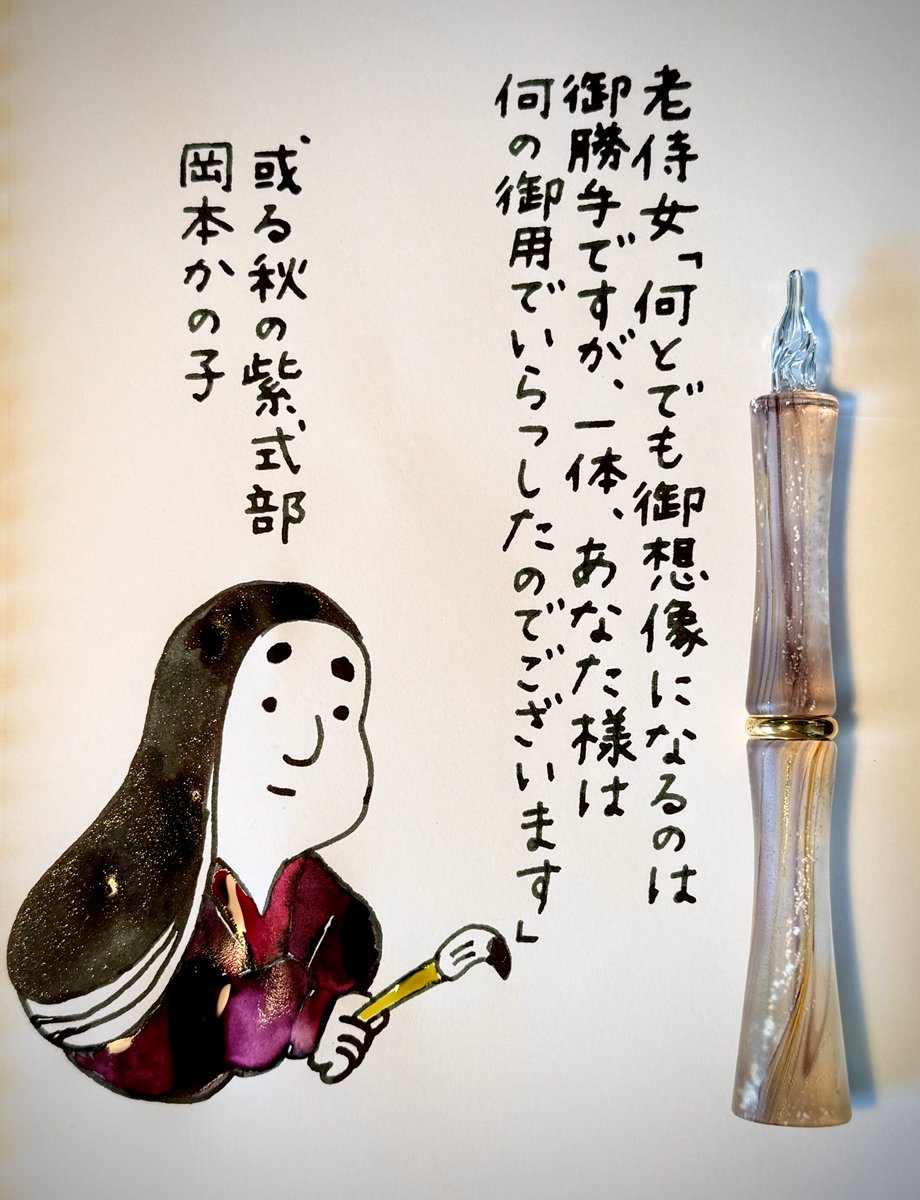 老侍女「何とでも御想像になるのは
御勝手ですが、一体、あなた様は
何の御用でいらつしたのでございます」
或る秋の紫式部
岡本かの子